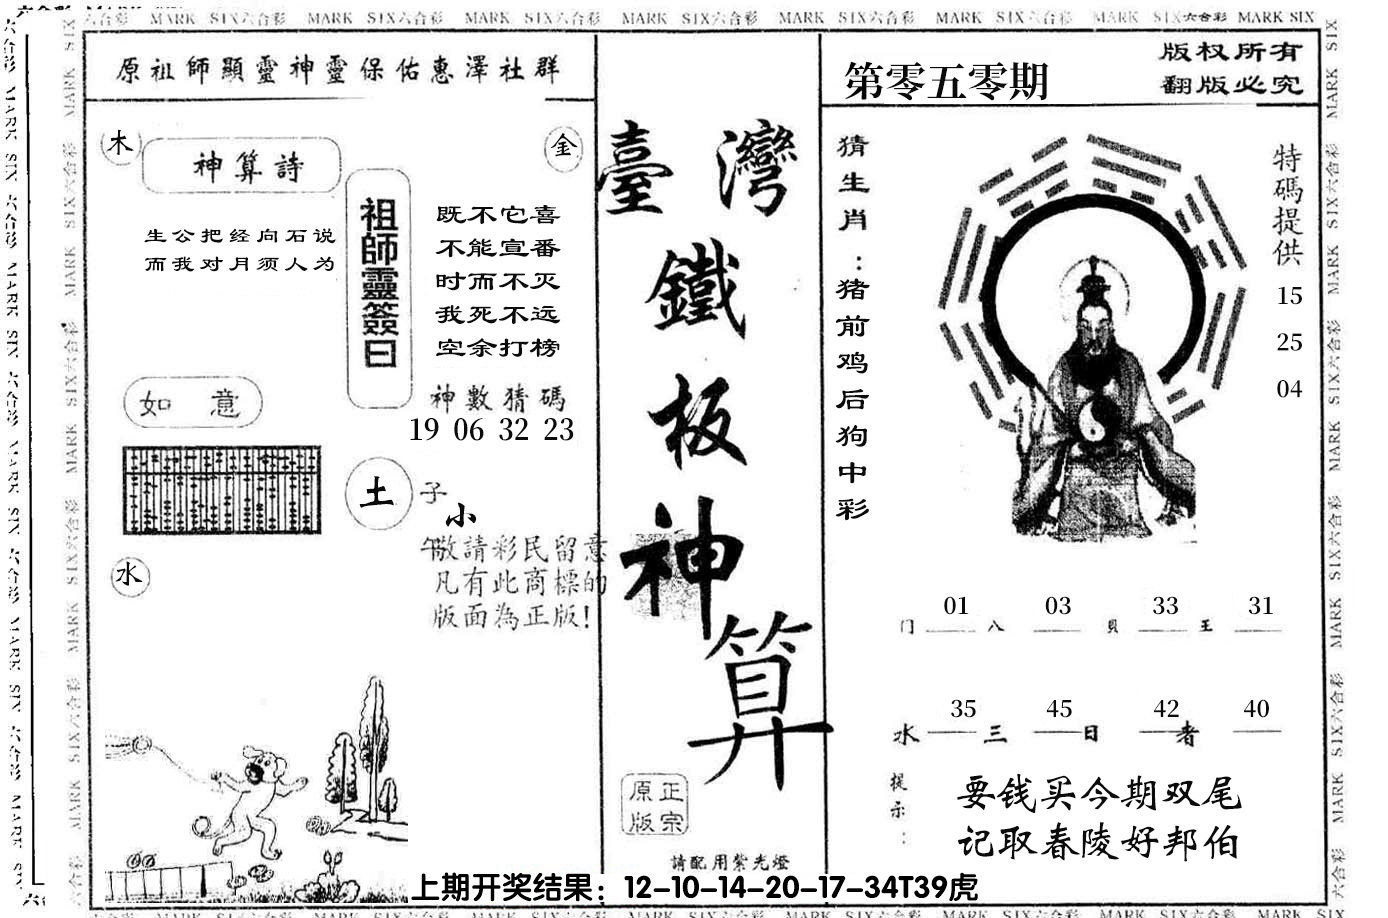 MARK SIX六合彩 MARK SIX六合彩 MARK SIX六合彩 MARK SIX六合彩 MARK SIX六合彩 MARK SIX六合彩 MARK SIX六合彩 MARK SIX
原祖師顯靈神靈保佑惠澤社群
木
神算詩
金
生公把经向石说
而我对月须人为
祖師靈簽曰
既不它喜
不能宣番
时而不灭
我死不远
空余打榜
如意
神數猜碼
19 06 32 23
土
子
小
午
敬請彩民留意
凡有此商標的
版面為正版!
水
臺灣
鐵
板
神
算
原正
版宗
請配用紫光燈
第零五零期
版权所有
翻版必究
猜生肖:猪前鸡后狗中彩
特碼提供
15
25
04
01 03 33 31
门 八 貝 王
35 45 42 40
水 三 日 者
提示:
要钱买今期双尾
记取春陵好邦伯
上期开奖结果：12-10-14-20-17-34T39虎